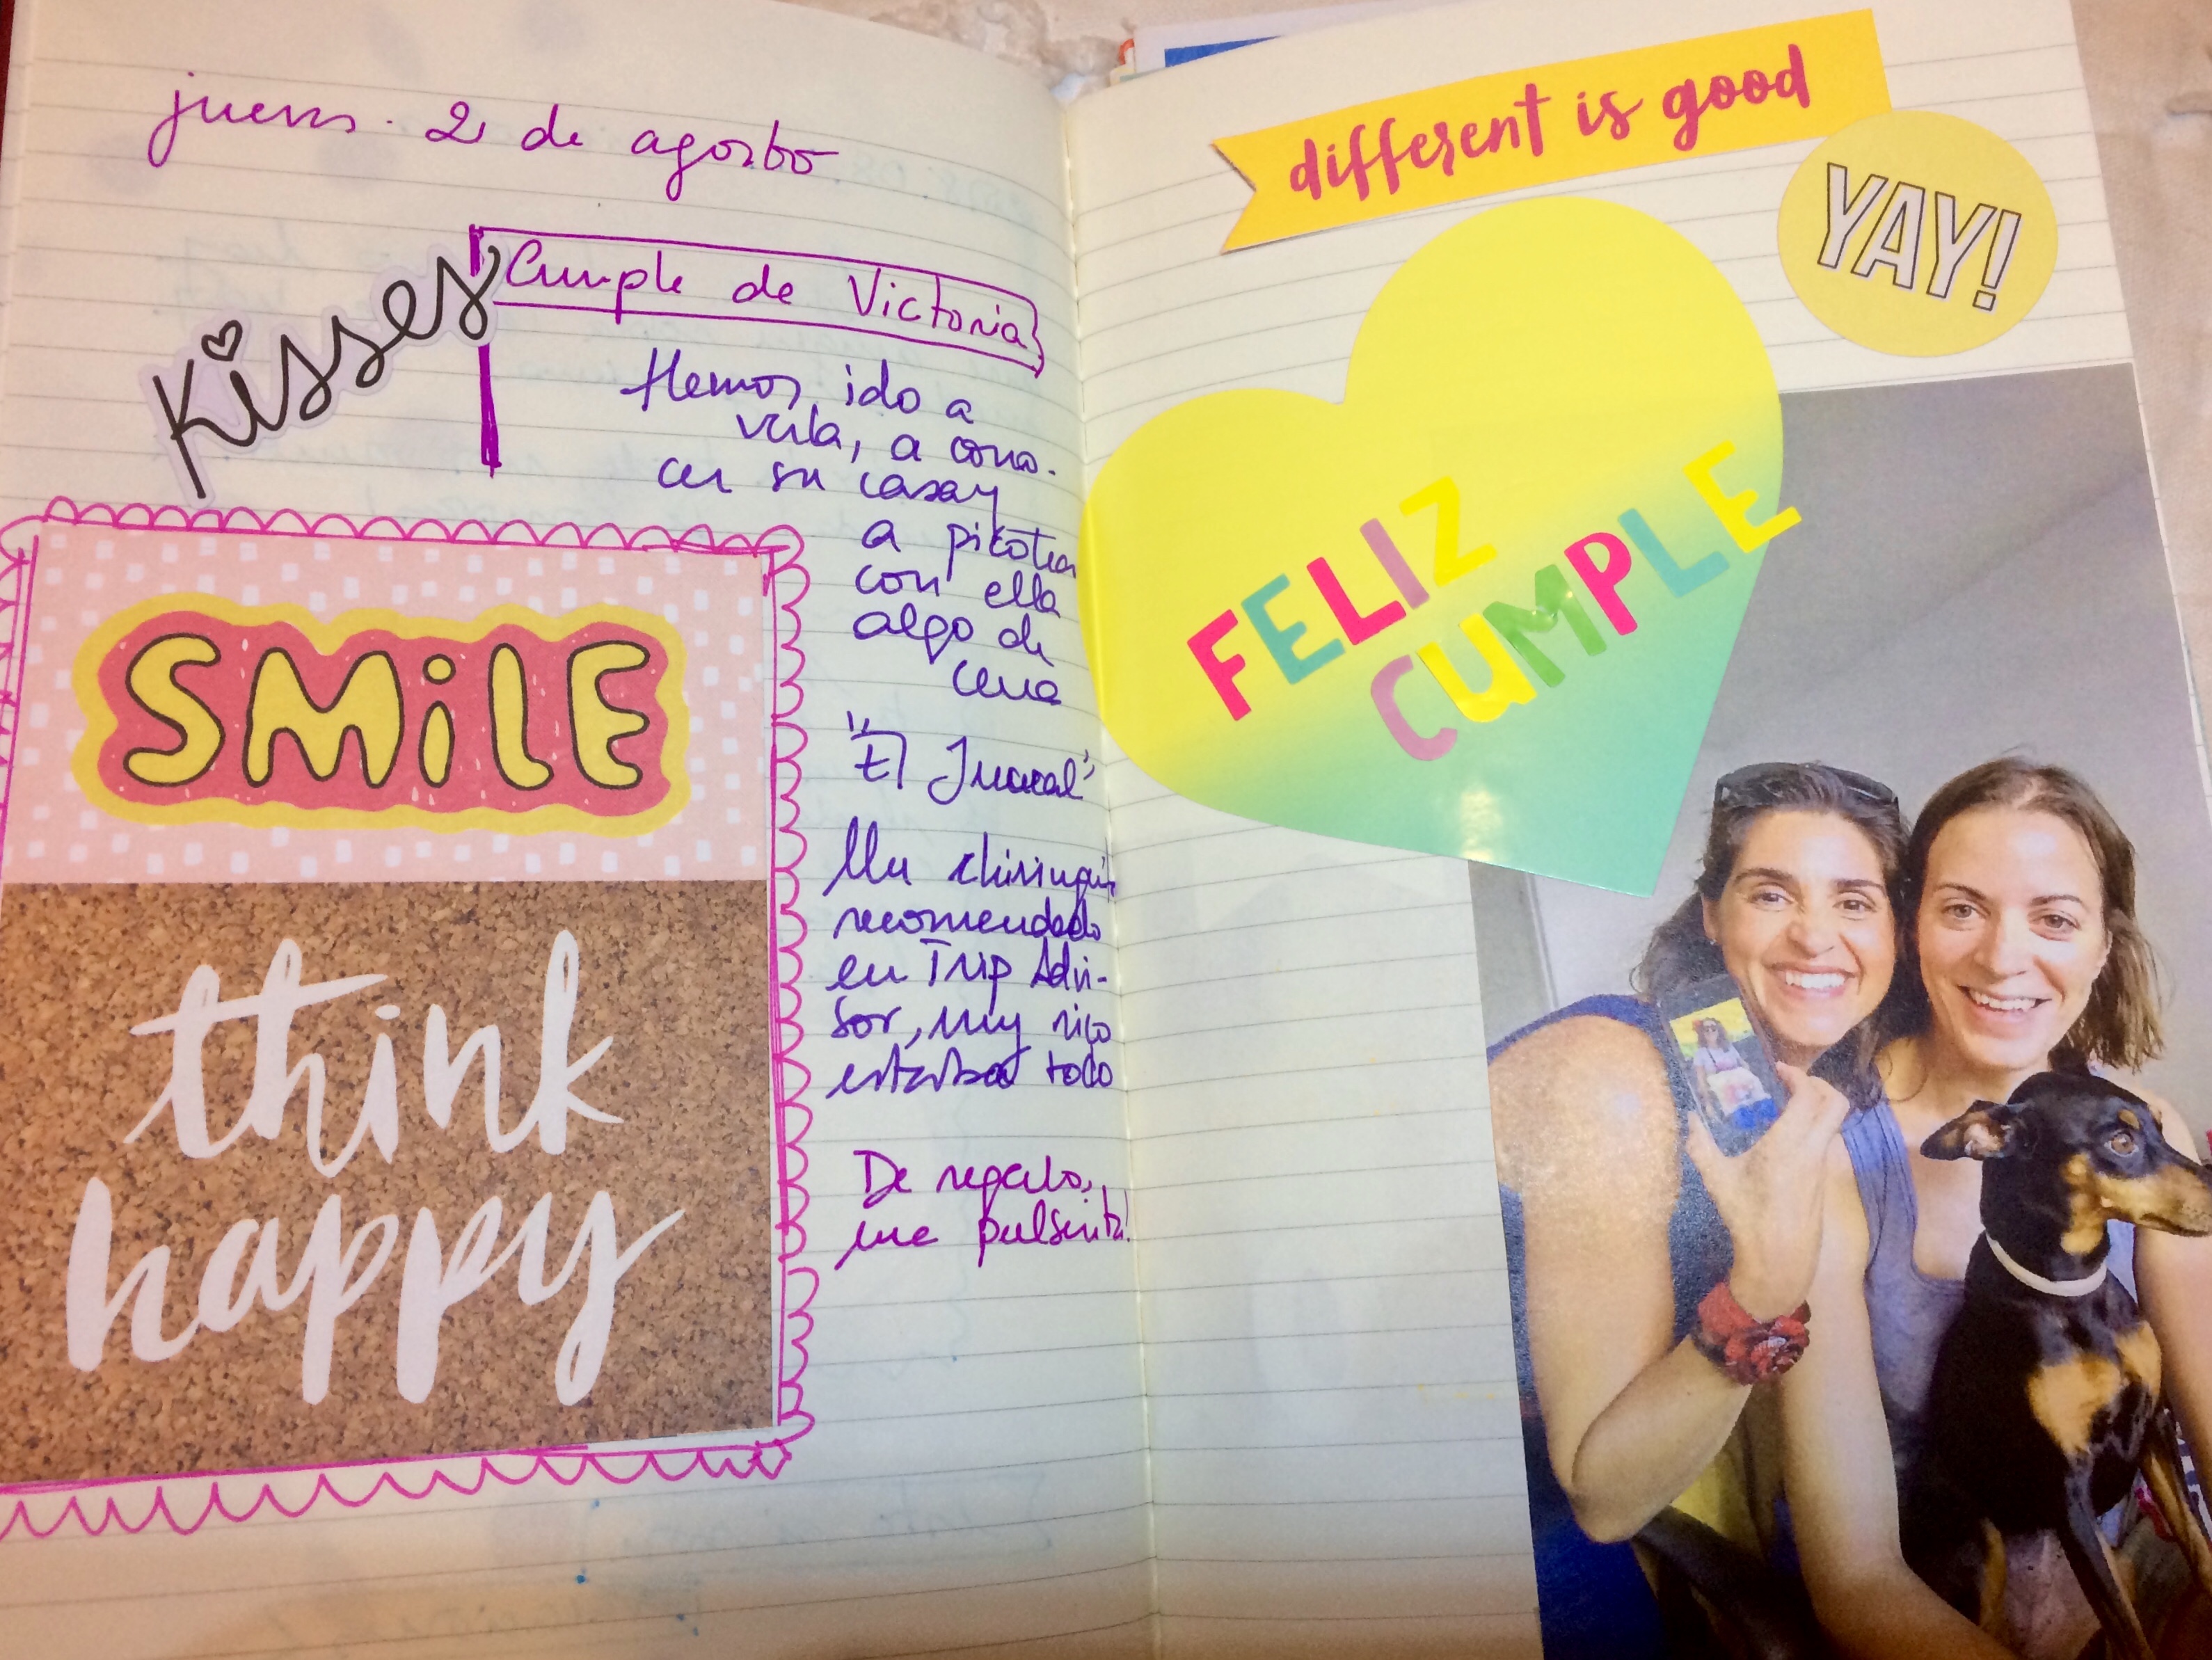 jueves. 2 de agosto
kisses
Cumple de Victoria
Hemos ido a
verla, a cono-
cer su casa y
a picotear
con ella
algo de
cena
"El Jucacal"
Un chiringuito
recomendado
en Trip Advi-
sor, muy rico
estaba todo
De regalo,
una pulserita!
SMiLE
think
happy
different is good
YAY!
FELIZ
CUMPLE